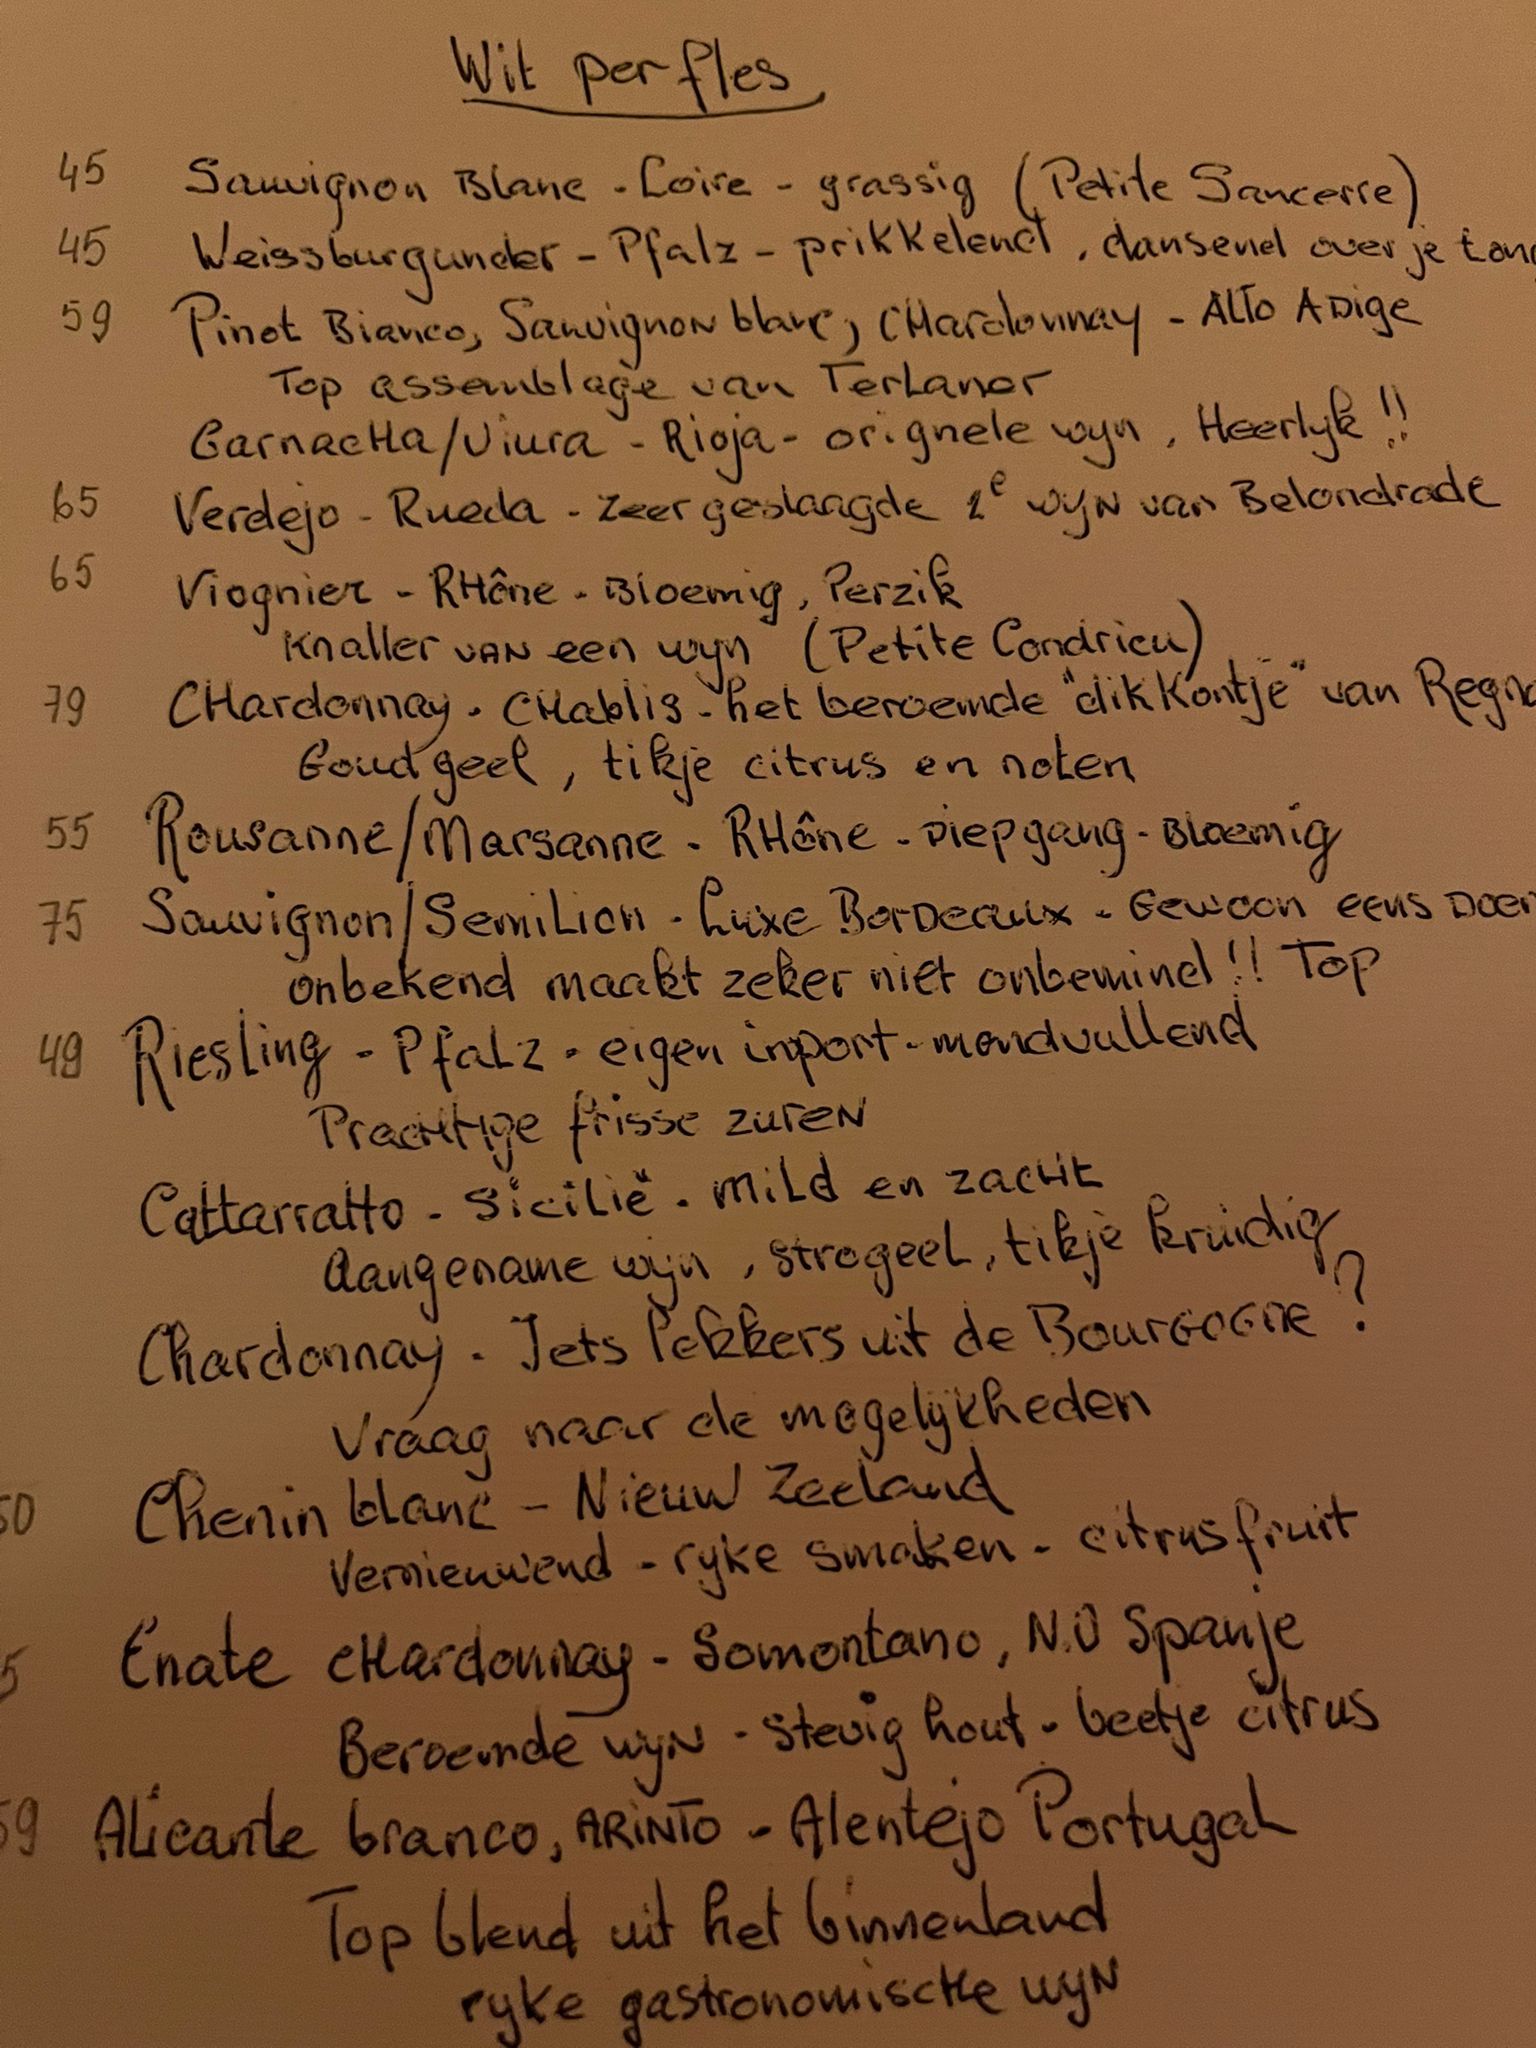 Wit per fles
45 Sauvignon Blanc - Loire - grassig (Petite Sancerre)
45 Weissburgunder - Pfalz - prikkelend, dansend over je
59 Pinot Bianco, Sauvignon blanc, CHardonnay - Alto Adige
Top assemblage van Terlaner
GarnacHa/Viura - Rioja - orignele wijn, Heerlijk!!
65 Verdejo - Rueda - zeer geslaagde 2e wijn van Belondrade
65 Viognier - RHône - Bloemig, Perzik
Knaller van een wijn (Petite Condrieu)
79 CHardonnay - CHablis - het beroemde "dikkontje" van
Goudgeel, tikje citrus en noten
55 Rousanne/Marsanne - RHône - Diepgang - Bloemig
75 Sauvignon/Semilion - Luxe Bordeaux - Gewoon eens
onbekend maakt zeker niet onbemind!! Top
49 Riesling - Pfalz - eigen inport - mondvullend
PracHtige frisse zuren
Cattarratto - Sicilië - mild en zacHt
Aangename wijn, strogeel, tikje kruidig
Chardonnay - Iets lekkers uit de Bourgogne?
Vraag naar de mogelijkheden
Chenin blanc - Nieuw Zeeland
Vernieuwend - rijke smaken - citrusfruit
Enate cHardonnay - Somontano, N.O Spanje
Beroemde wijn - stevig hout - beetje citrus
Alicante branco, ARINTO - Alentejo Portugal
Top blend uit het binnenland
rijke gastronomiscHe wijn